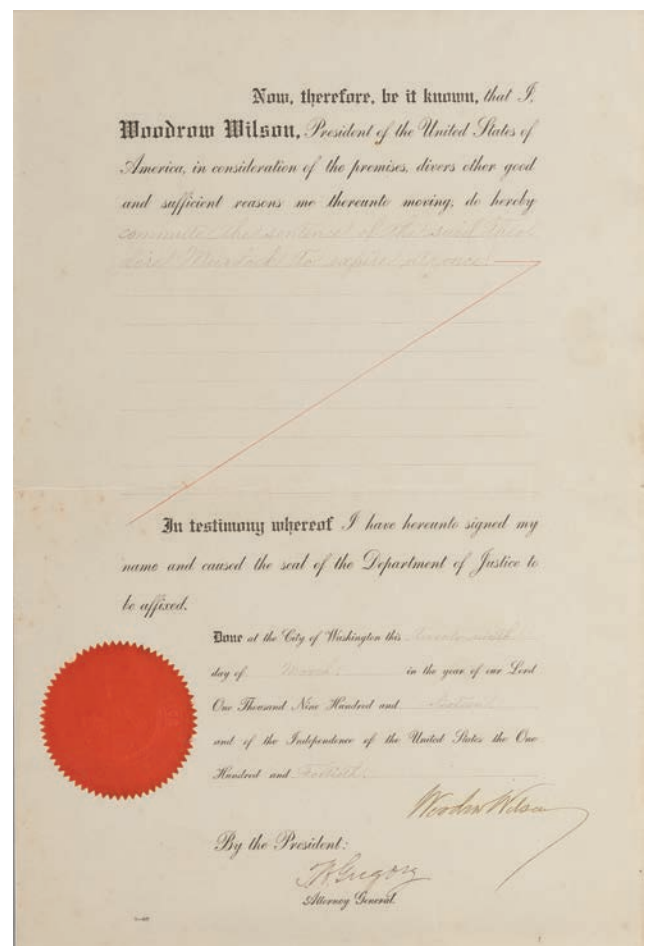 Now, therefore, be it known, that I,
Woodrow Wilson, President of the United States of
America, in consideration of the premises, divers other good
and sufficient reasons me thereunto moving, do hereby
commute the sentence of the said
Murdock to expire at once
In testimony whereof I have hereunto signed my
name and caused the seal of the Department of Justice to
be affixed.
Done at the City of Washington this
day of March in the year of our Lord
One Thousand Nine Hundred and Sixteen
and of the Independence of the United States the One
Hundred and Fortieth.
Woodrow Wilson
By the President:
TWGregory
Attorney General.